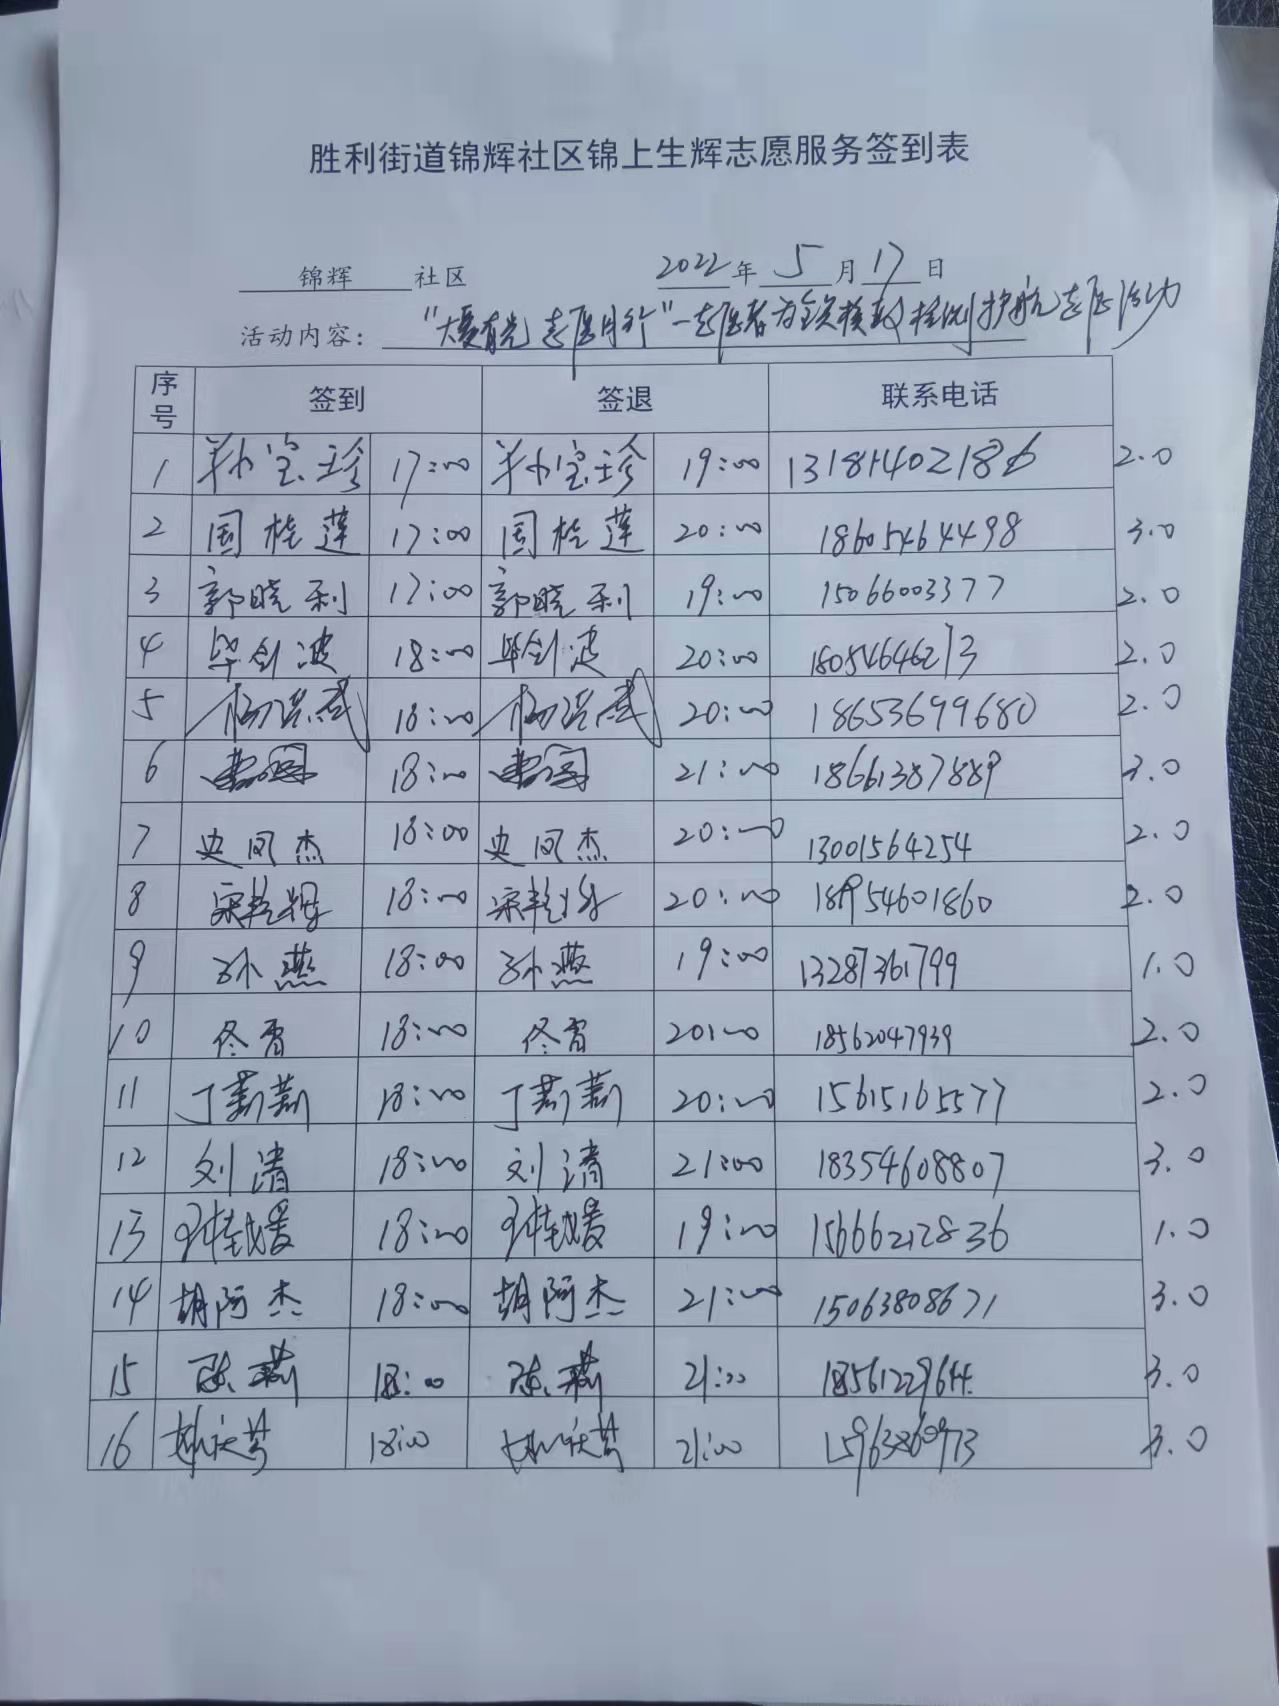 胜利街道锦辉社区锦上生辉志愿服务签到表
锦辉 社区 2022年 5 月 17 日
活动内容： “大爱有光 志愿同行”—志愿者为全员核酸检测护航志愿活动
序号 签到 签退 联系电话
1 宝珍 17:00 宝珍 19:00 13181402186 2.0
2 国桂莲 17:00 国桂莲 20:00 18605464498 3.0
3 郭晓利 17:00 郭晓利 19:00 15066003377 2.0
4 毕剑波 18:00 毕剑波 20:00 18054646213 2.0
5 18:00 20:00 18653699680 2.0
6 18:00 21:00 18661387889 3.0
7 史凤杰 18:00 史凤杰 20:00 13001564254 2.0
8 宋乾辉 18:00 宋乾辉 20:00 18954601860 2.0
9 孙燕 18:00 孙燕 19:00 13287361799 1.0
10 佟霄 18:00 佟霄 20:00 18562047939 2.0
11 丁莉莉 18:00 丁莉莉 20:00 15615165577 2.0
12 刘清 18:00 刘清 21:00 18354608807 3.0
13 18:00 19:00 15666212836 1.0
14 胡阿杰 18:00 胡阿杰 21:00 15063808671 3.0
15 陈莉 18:00 陈莉 21:00 3.0
16 18:00 21:00 3.0